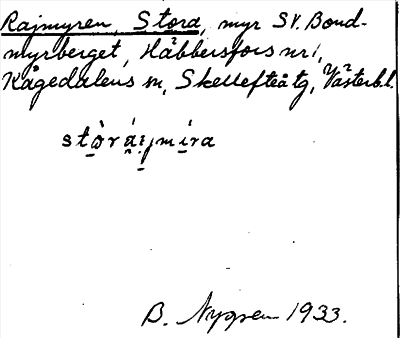 Rajmyren, Stora, myr SV. Bond-
myrberget, Häbbersfors nr 1,
Kågedalens sn, Skellefteå tg, Västerb. l.
stò̱rá̱i̱ jmi̱ra
B. Nygren 1933.